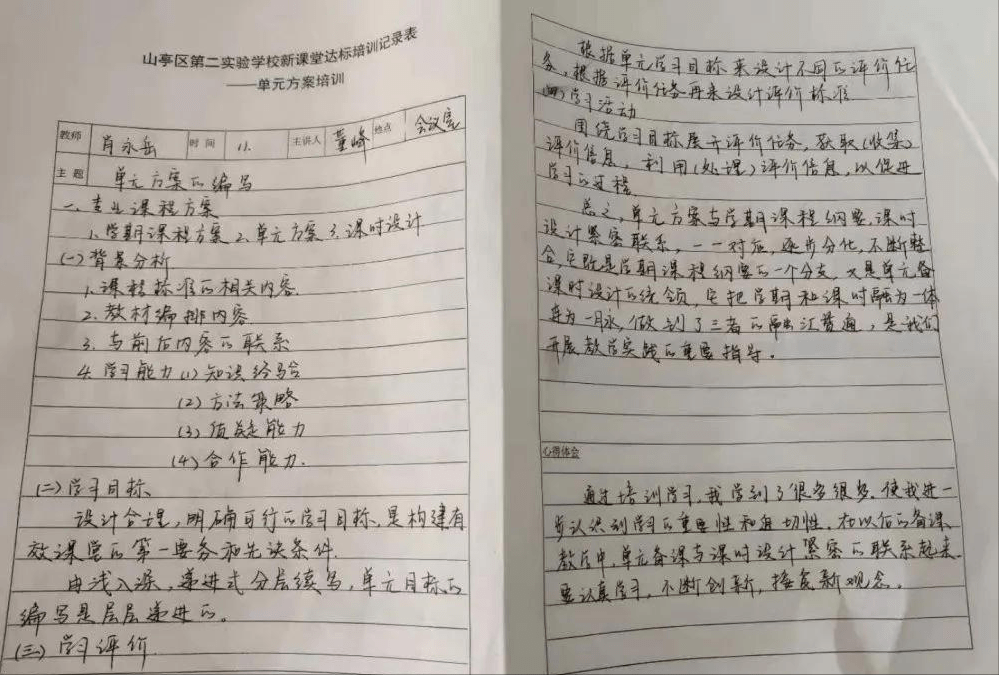 山亭区第二实验学校新课堂达标培训记录表
——单元方案培训
教师 肖永岳 时间 11. 主讲人 董峰 地点 会议室
主题 单元方案的编写
一、专业课程方案
1.学期课程方案 2.单元方案 3.课时设计
(一)背景分析
1.课程标准的相关内容.
2.教材编排内容
3.与前后内容的联系
4.学习能力(1)知识经验
(2)方法策略
(3)质疑能力
(4)合作能力.
(二)学习目标
设计合理,明确可行的学习目标,是构建有
效课堂的第一要务和先决条件.
由浅入深,递进式分层续写,单元目标的
编写是层层递进的。
(三)学习评价
根据单元学习目标来设计不同的评价任
务,根据评价任务再来设计评价标准
(四)学习活动
围绕学习目标展开评价任务,获取(收集)
评价信息,利用(处理)评价信息,以促进
学习的进程
总之,单元方案与学期课程纲要,课时
设计紧密联系,一一对应,逐步分化,不断整
合,它既是学期课程纲要的一个分支,又是单元备
课时设计的统领,它把学期和课时融为一体
连为一脉,做到了三者的融会贯通,是我们
开展教学实践的重要指导。
心得体会
通过培训学习,我学到了很多很多,使我进一
步认识到学习的重要性和迫切性,在以后的备课
教学中,单元备课与课时设计紧密的联系起来
要认真学习,不断创新,接受新观念。